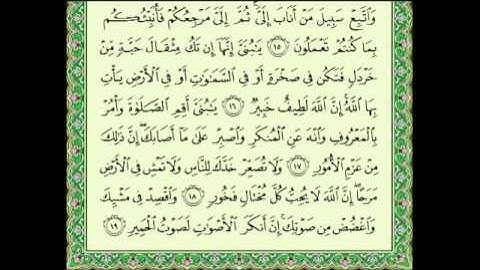 وَاتَّبِعْ سَبِيلَ مَنْ أَنَابَ إِلَىَّ ثُمَّ إِلَىَّ مَرْجِعُكُمْ فَأُنَبِّئُكُم
بِمَا كُنتُمْ تَعْمَلُونَ ١٥ يَٰبُنَىَّ إِنَّهَآ إِن تَكُ مِثْقَالَ حَبَّةٍ مِّنْ
خَرْدَلٍ فَتَكُن فِى صَخْرَةٍ أَوْ فِى السَّمَٰوَٰتِ أَوْ فِى الْأَرْضِ يَأْتِ
بِهَا اللَّهُ إِنَّ اللَّهَ لَطِيفٌ خَبِيرٌ ١٦ يَٰبُنَىَّ أَقِمِ الصَّلَوٰةَ وَأْمُرْ
بِالْمَعْرُوفِ وَانْهَ عَنِ الْمُنكَرِ وَاصْبِرْ عَلَىٰ مَآ أَصَابَكَ إِنَّ ذَٰلِكَ
مِنْ عَزْمِ الْأُمُورِ ١٧ وَلَا تُصَعِّرْ خَدَّكَ لِلنَّاسِ وَلَا تَمْشِ فِى الْأَرْضِ
مَرَحًا إِنَّ اللَّهَ لَا يُحِبُّ كُلَّ مُخْتَالٍ فَخُورٍ ١٨ وَاقْصِدْ فِى مَشْيِكَ
وَاغْضُضْ مِن صَوْتِكَ إِنَّ أَنكَرَ الْأَصْوَٰتِ لَصَوْتُ الْحَمِيرِ ١٩